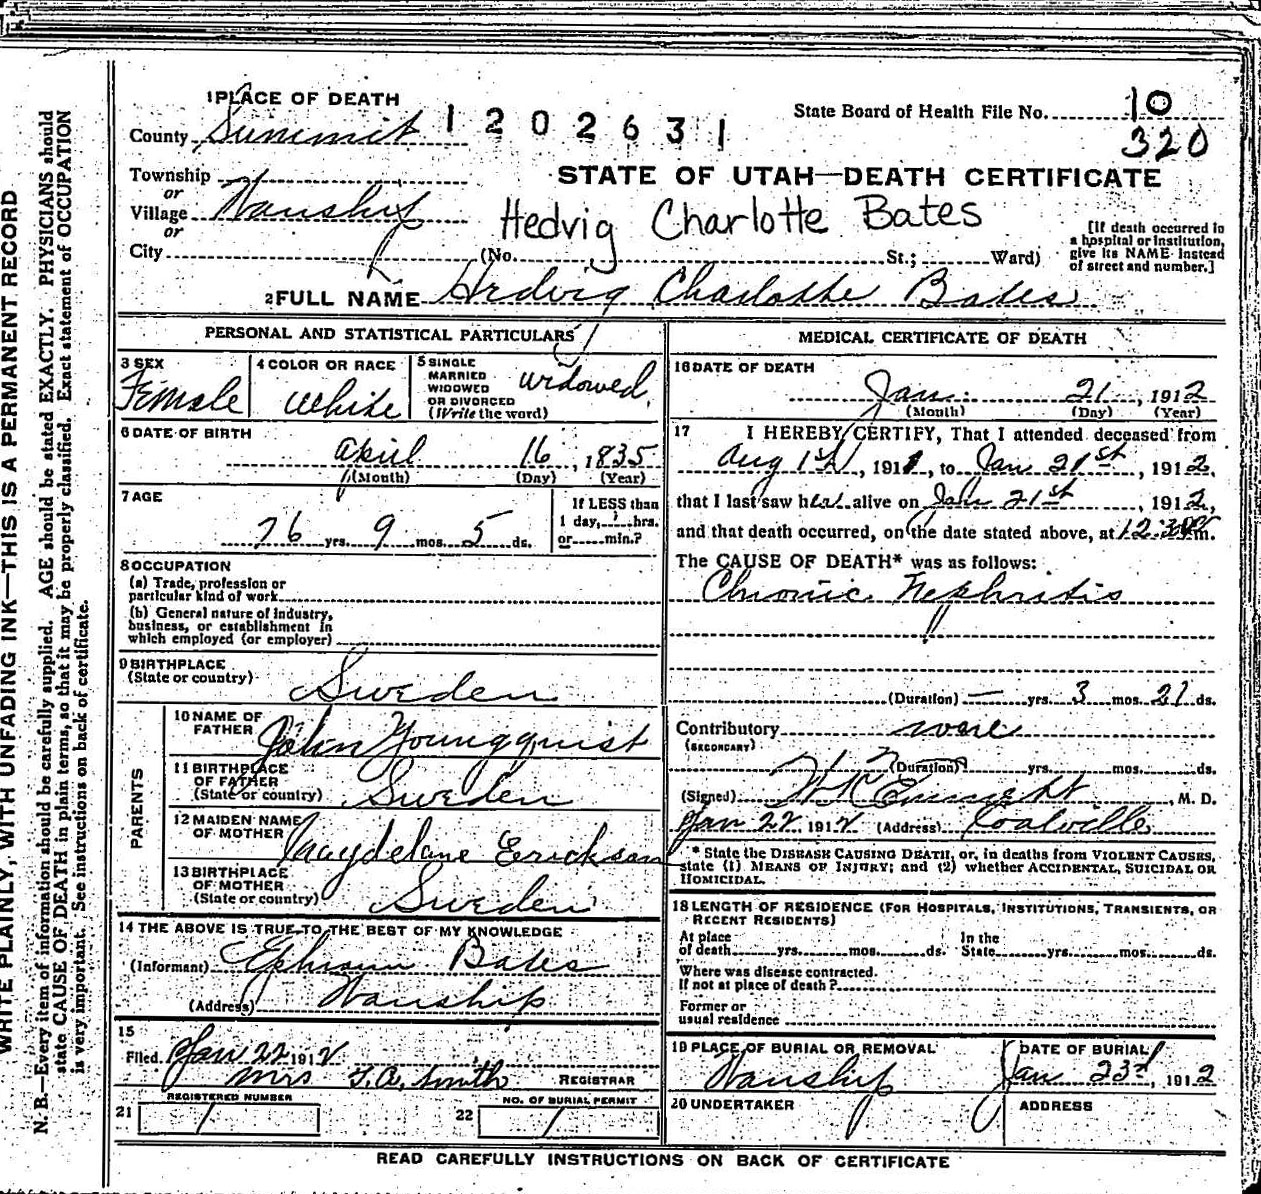 WRITE PLAINLY, WITH UNFADING INK—THIS IS A PERMANENT RECORD
N.B.—Every item of information should be carefully supplied. AGE should be stated EXACTLY. PHYSICIANS should
state CAUSE OF DEATH in plain terms, so that it may be properly classified. Exact statement of OCCUPATION
is very important. See instructions on back of certificate.
1 PLACE OF DEATH
County Summit
1202631
State Board of Health File No. 10
320
Township
or
Village Wanship
or
City
STATE OF UTAH—DEATH CERTIFICATE
Hedvig Charlotte Bates
(No. St.; Ward)
[If death occurred in
a hospital or institution,
give its NAME instead
of street and number.]
2 FULL NAME Hedvig Charlotte Bates
PERSONAL AND STATISTICAL PARTICULARS
3 SEX
Female
4 COLOR OR RACE
White
5 SINGLE
MARRIED
WIDOWED
OR DIVORCED
(Write the word)
widowed
6 DATE OF BIRTH
April 16, 1835
(Month) (Day) (Year)
7 AGE
76 yrs. 9 mos. 5 ds.
If LESS than
1 day, hrs.
or min.?
8 OCCUPATION
(a) Trade, profession or
particular kind of work
(b) General nature of industry,
business, or establishment in
which employed (or employer)
9 BIRTHPLACE
(State or country)
Sweden
PARENTS
10 NAME OF
FATHER
John Youngquist
11 BIRTHPLACE
OF FATHER
(State or country) Sweden
12 MAIDEN NAME
OF MOTHER
Maydelane Erickson
13 BIRTHPLACE
OF MOTHER
(State or country) Sweden
14 THE ABOVE IS TRUE TO THE BEST OF MY KNOWLEDGE
(Informant) Ephraim Bates
(Address) Wanship
15
Filed Jan 22 1912
Mrs T.A. Smith REGISTRAR
21 REGISTERED NUMBER
1
22 NO. OF BURIAL PERMIT
1
MEDICAL CERTIFICATE OF DEATH
16 DATE OF DEATH
Jan. 21, 1912
(Month) (Day) (Year)
17 I HEREBY CERTIFY, That I attended deceased from
Aug 1st, 1911, to Jan 21st, 1912,
that I last saw her alive on Jan 21st, 1912,
and that death occurred, on the date stated above, at m.
The CAUSE OF DEATH* was as follows:
Chronic Nephritis
(Duration) — yrs. 3 mos. 21 ds.
Contributory none
(SECONDARY)
(Duration) yrs. mos. ds.
(Signed) , M. D.
Jan 22 1912 (Address) Coalville
* State the DISEASE CAUSING DEATH, or, in deaths from VIOLENT CAUSES,
state (1) MEANS OF INJURY; and (2) whether ACCIDENTAL, SUICIDAL OR
HOMICIDAL.
18 LENGTH OF RESIDENCE (FOR HOSPITALS, INSTITUTIONS, TRANSIENTS, OR
RECENT RESIDENTS)
At place
of death yrs. mos. ds.
In the
State yrs. mos. ds.
Where was disease contracted.
If not at place of death?
Former or
usual residence
19 PLACE OF BURIAL OR REMOVAL
Wanship
DATE OF BURIAL
Jan 23d, 1912
20 UNDERTAKER
ADDRESS
READ CAREFULLY INSTRUCTIONS ON BACK OF CERTIFICATE